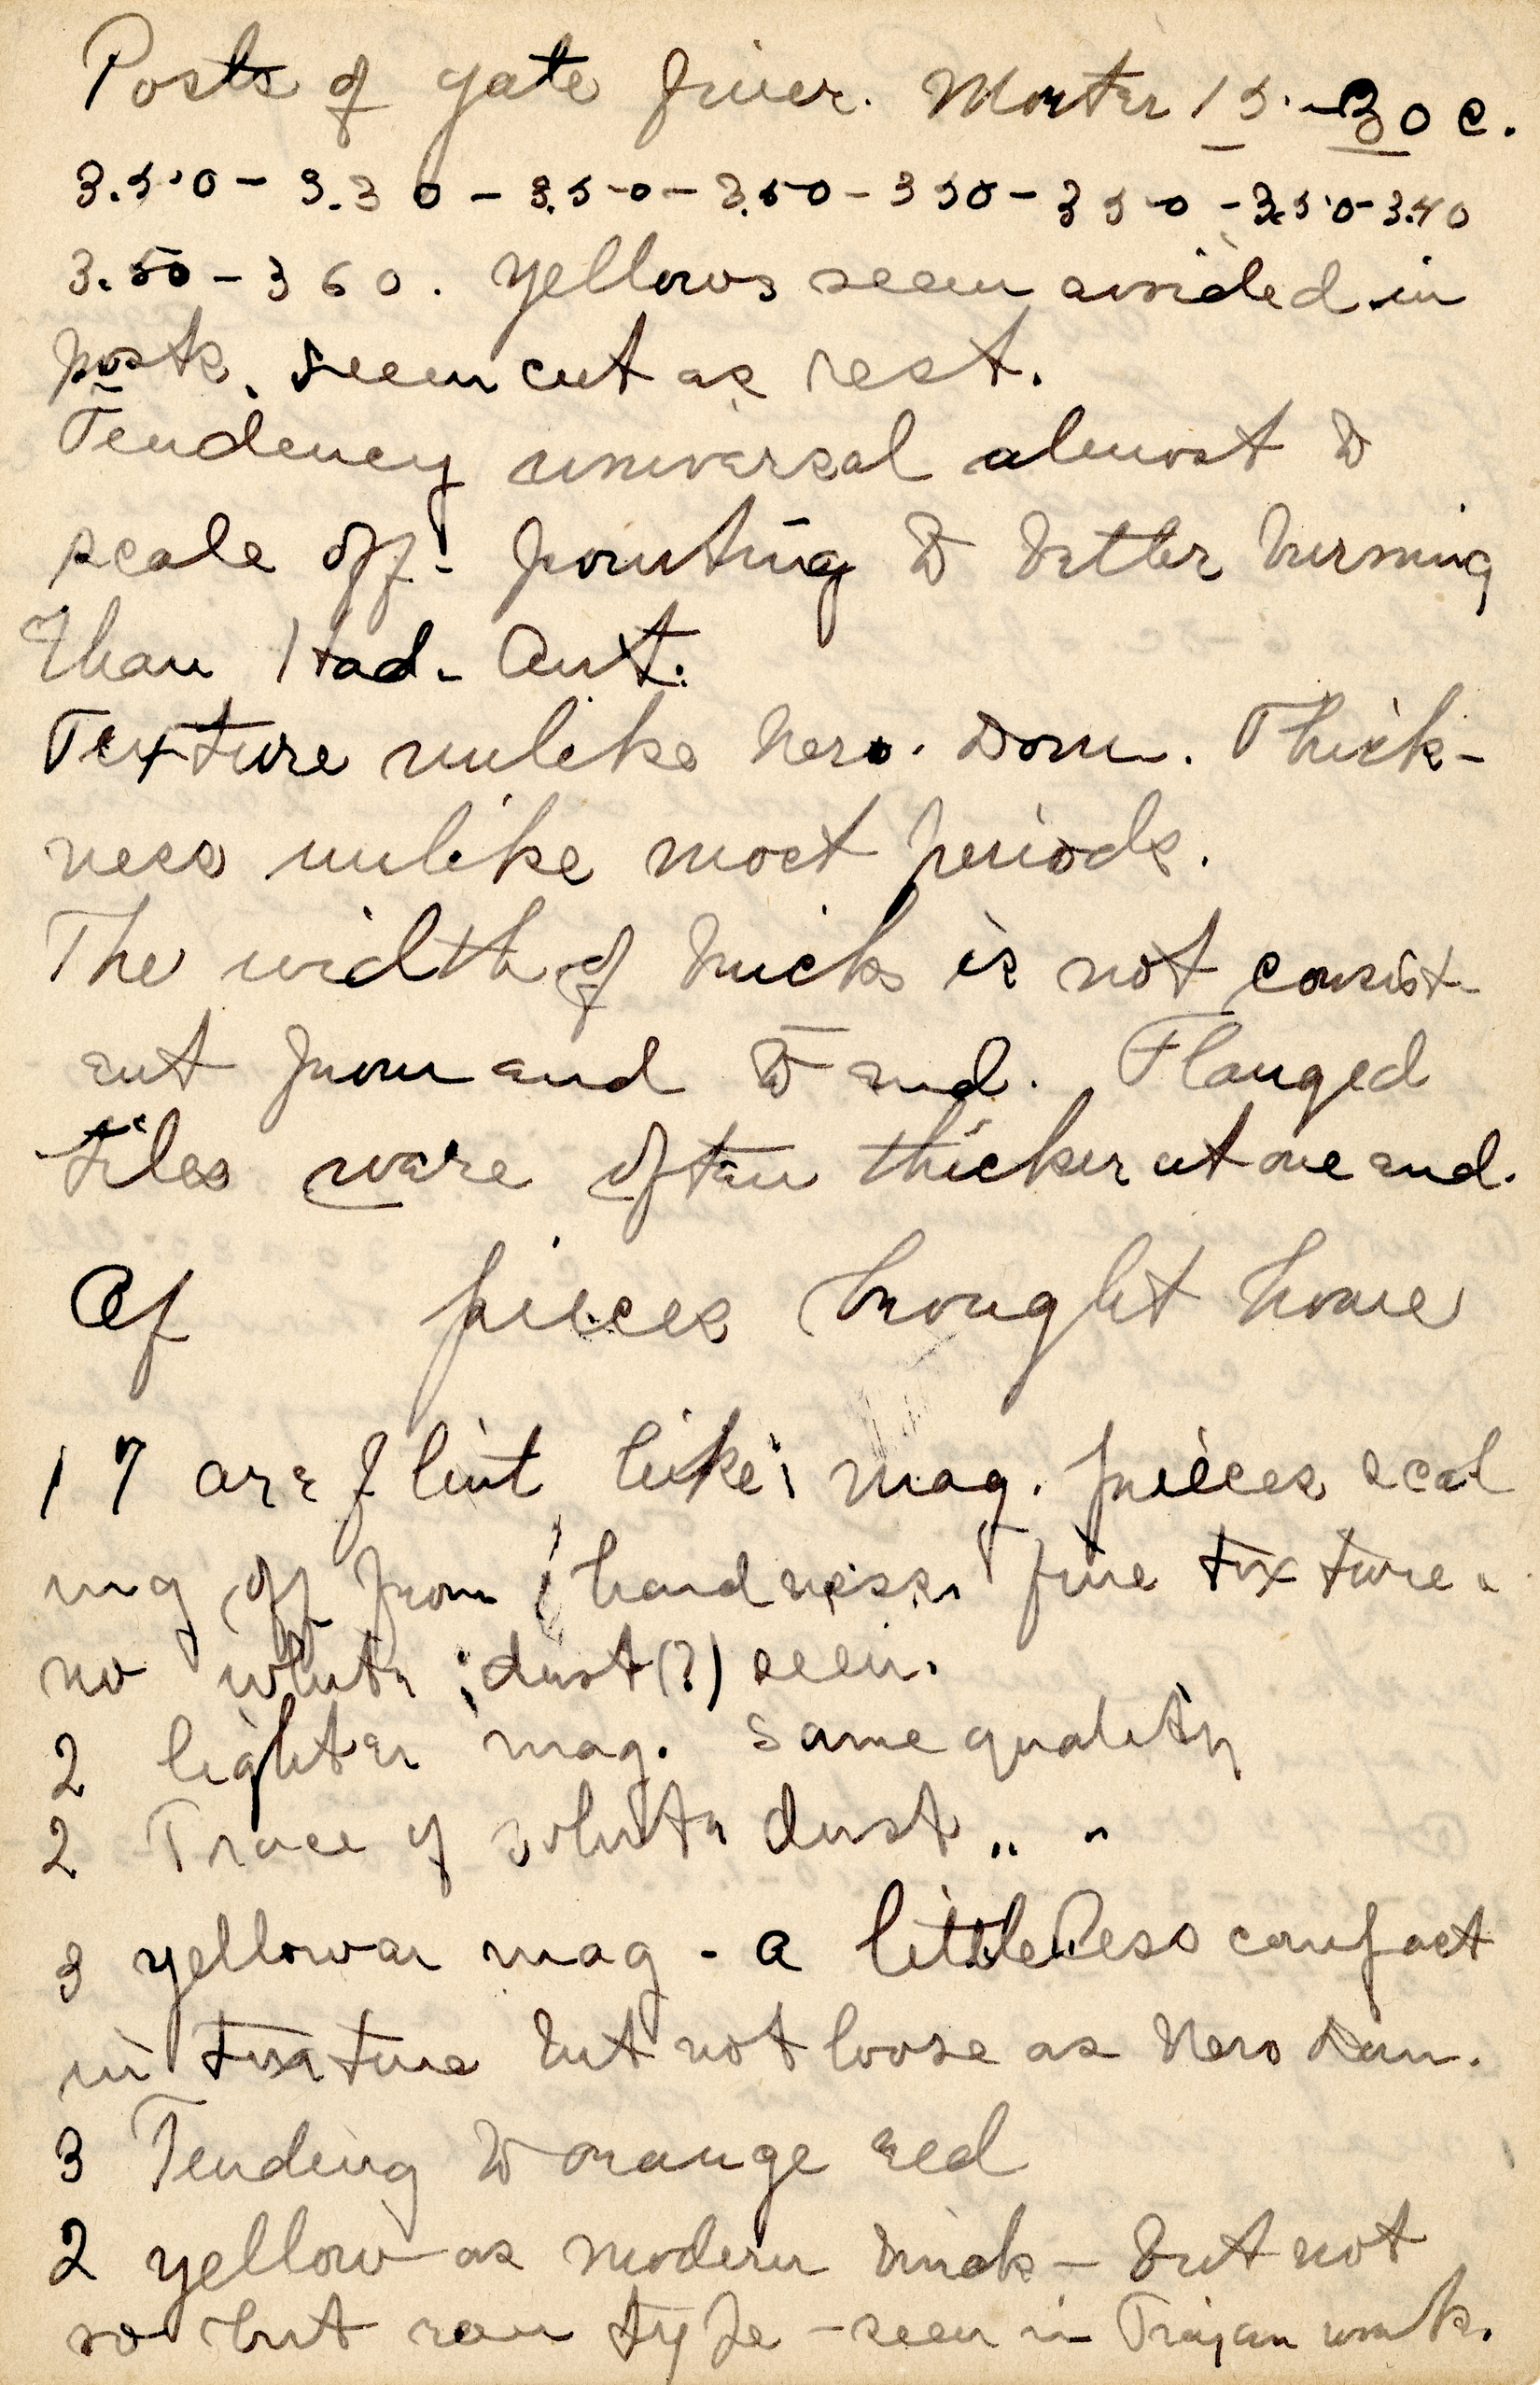 Posts of gate finer. Morter 15-30 c.
3.50 - 3.30 - 3.50 - 3.50 - 350 - 350 - 3.50 - 3.40
3.50 - 360. Yellows seem avoided in
posts. Seem cut as rest.
Tendency universal almost to
scale off - pointing to better burning
than Had. Ant.
Texture unlike Nero. Dom. Thick-
ness unlike most periods.
The width of bricks is not consist-
ent from end to end. Flanged
tiles were often thicker at one end.
Of pieces brought home
17 are flint like; mag. pieces scal
ing off from hardness, fine texture.
no white dust (?) seen.
2 lighter mag. same quality
2 Trace of white dust " "
3 yellower mag - a little less compact
in texture but not loose as Nero Dom.
3 Tending to orange red
2 yellow as modern brick - but not
so but raw type - seen in Trajan work.